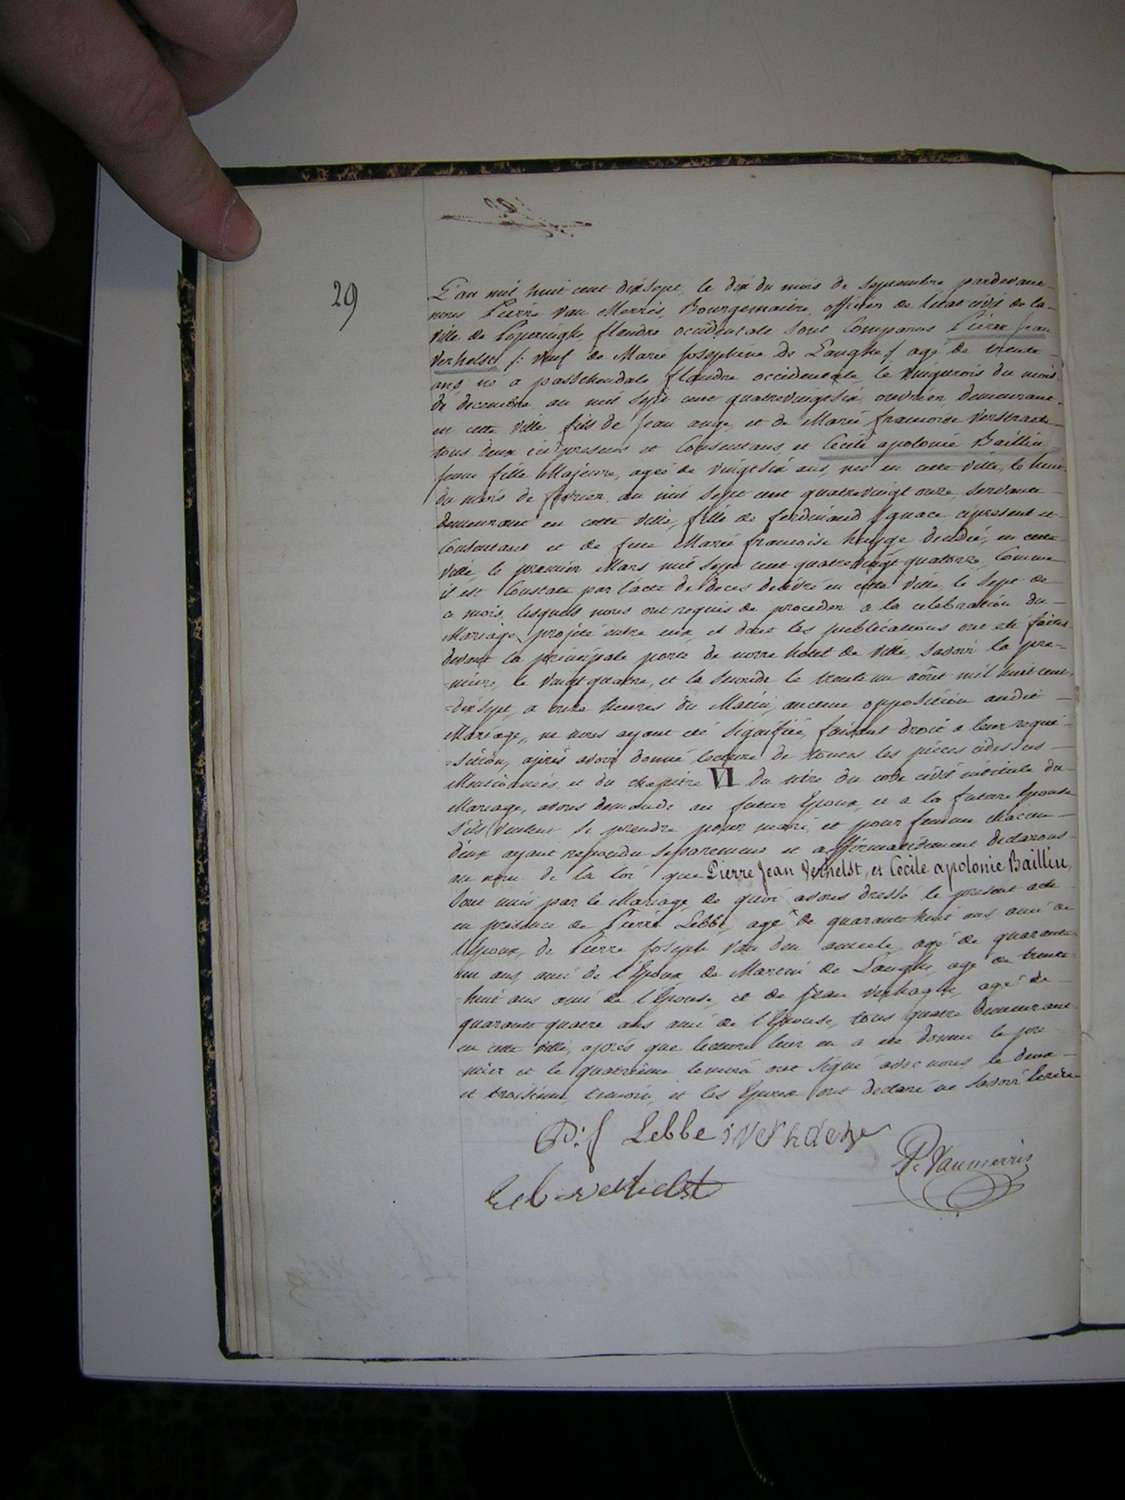 29
L'an mil huit cent dix sept, le dix du mois de Septembre pardevant
nous Pierre Van Merris, Bourgemaitre, officier de l'etat civil de la
ville de Poperinghe, flandre occidentale sont Comparus Pierre Jean
Verhelst /: veuf de Marie Josephine De Langhe / agé de trente
ans né a passchendale flandre occidentale, le vingt trois du mois
de decembre, an mil sept cent quatrevingt six, ouvrier demeurant
en cette ville fils de Jean ange, et de Marie francoise Verstraete
tous deux ici presens et Consentans, et Cecile apolonie Baillieu
jeune fille Majeure, agée de vingt six ans, née en cette ville, le huit
du mois de fevrier, an mil sept cent quatrevingt onze, Servante
demeurant en cette ville, fille de ferdinand Ignace ci present et
Consentant et de feue Marie francoise huyge decedée, en cette
ville, le premier Mars mil sept cent quatrevingt quatorze, Comme
il est Constaté par l'acte de deces delivré en cette ville, le sept de
ce mois, lesquels nous ont requis de proceder a la celebration du
Mariage, projeté entre eux et dont les publications ont été faites
devant la principale porte de notre hotel de ville, savoir la pre-
-miere, le vingt quatre, et la seconde le trente un août mil huit cent
-dix sept, a onze heures du Matin, aucune opposition audit
Mariage, ne nous ayant été signifiée, faisant droit a leur requi-
-sition, après avoir donné lecture de toutes les pièces ci dessus
Mentionnées et du chapitre VI du titre du code civil intitulé du
Mariage, avons demandé au futur Epoux, et a la future Epouse
s'ils veulent se prendre pour mari, et pour femme chacun
d'eux ayant repondu separement et affirmativement declarons
au nom de la loi que Pierre Jean Verhelst, et Cecile apolonie Baillieu,
sont unis par le Mariage, de quoi avons dressé le present acte
en présence de Pierre Lebbe, agé de quarante huit ans ami de
l'Epoux, de Pierre Joseph Van den agé de quarante
un ans, ami de l'Epoux de Martin de Langhe, agé de trente
huit ans ami de l'Epouse, et de Jean Verhaeghe, agé de
quarante quatre ans ami de l'Epouse, tous quatre demeurant
en cette ville, après que lecture leur en a été donnée le pre
mier et le quatrième temoin ont signé avec nous le deux
et troisième temoin, et les Epoux ont declaré ne savoir Ecrire
P: J Lebbe
P. Vanmerris
verhelst